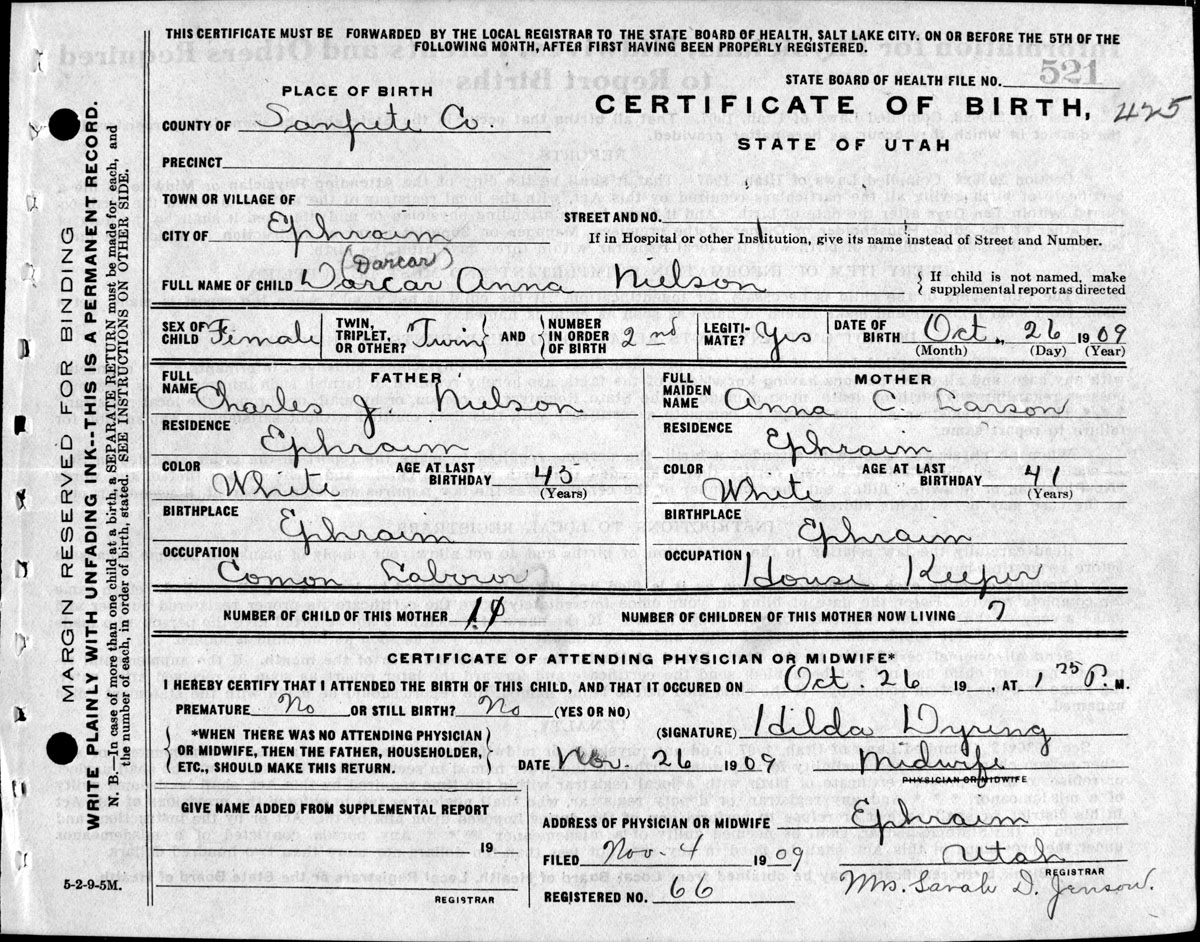 THIS CERTIFICATE MUST BE FORWARDED BY THE LOCAL REGISTRAR TO THE STATE BOARD OF HEALTH, SALT LAKE CITY, ON OR BEFORE THE 5TH OF THE
FOLLOWING MONTH, AFTER FIRST HAVING BEEN PROPERLY REGISTERED.
STATE BOARD OF HEALTH FILE NO. 521
PLACE OF BIRTH
CERTIFICATE OF BIRTH, 425
COUNTY OF Sanpete Co.
STATE OF UTAH
PRECINCT
TOWN OR VILLAGE OF
STREET AND NO.
CITY OF Ephraim
If in Hospital or other Institution, give its name instead of Street and Number.
(Darcar)
FULL NAME OF CHILD Darcar Anna Nielson
{ If child is not named, make
supplemental report as directed
SEX OF CHILD Female
TWIN, TRIPLET, OR OTHER? Twin } AND { NUMBER IN ORDER OF BIRTH 2nd
LEGITIMATE? Yes
DATE OF BIRTH Oct., 26 1909
(Month) (Day) (Year)
FATHER
FULL NAME Charles J. Nielson
RESIDENCE Ephraim
COLOR White AGE AT LAST BIRTHDAY 45
(Years)
BIRTHPLACE Ephraim
OCCUPATION Comon Labour
MOTHER
FULL MAIDEN NAME Anna C. Larson
RESIDENCE Ephraim
COLOR White AGE AT LAST BIRTHDAY 41
(Years)
BIRTHPLACE Ephraim
OCCUPATION House Keeper
NUMBER OF CHILD OF THIS MOTHER
NUMBER OF CHILDREN OF THIS MOTHER NOW LIVING 7
CERTIFICATE OF ATTENDING PHYSICIAN OR MIDWIFE*
I HEREBY CERTIFY THAT I ATTENDED THE BIRTH OF THIS CHILD, AND THAT IT OCCURED ON Oct. 26 19 , AT 1 25 P. M.
PREMATURE No OR STILL BIRTH? No (YES OR NO)
(SIGNATURE) Hilda Dyring
{ *WHEN THERE WAS NO ATTENDING PHYSICIAN
OR MIDWIFE, THEN THE FATHER, HOUSEHOLDER,
ETC., SHOULD MAKE THIS RETURN. }
DATE Nov. 26 1909 Midwife
PHYSICIAN OR MIDWIFE
GIVE NAME ADDED FROM SUPPLEMENTAL REPORT
19
REGISTRAR
ADDRESS OF PHYSICIAN OR MIDWIFE Ephraim
FILED Nov. 4 1909 Utah
REGISTRAR
REGISTERED NO. 66 Mrs. Sarah D. Jenson.
5-2-9-5M.
MARGIN RESERVED FOR BINDING
WRITE PLAINLY WITH UNFADING INK--THIS IS A PERMANENT RECORD.
N. B.—In case of more than one child at a birth, a SEPARATE RETURN must be made for each, and
the number of each, in order of birth, stated. SEE INSTRUCTIONS ON OTHER SIDE.